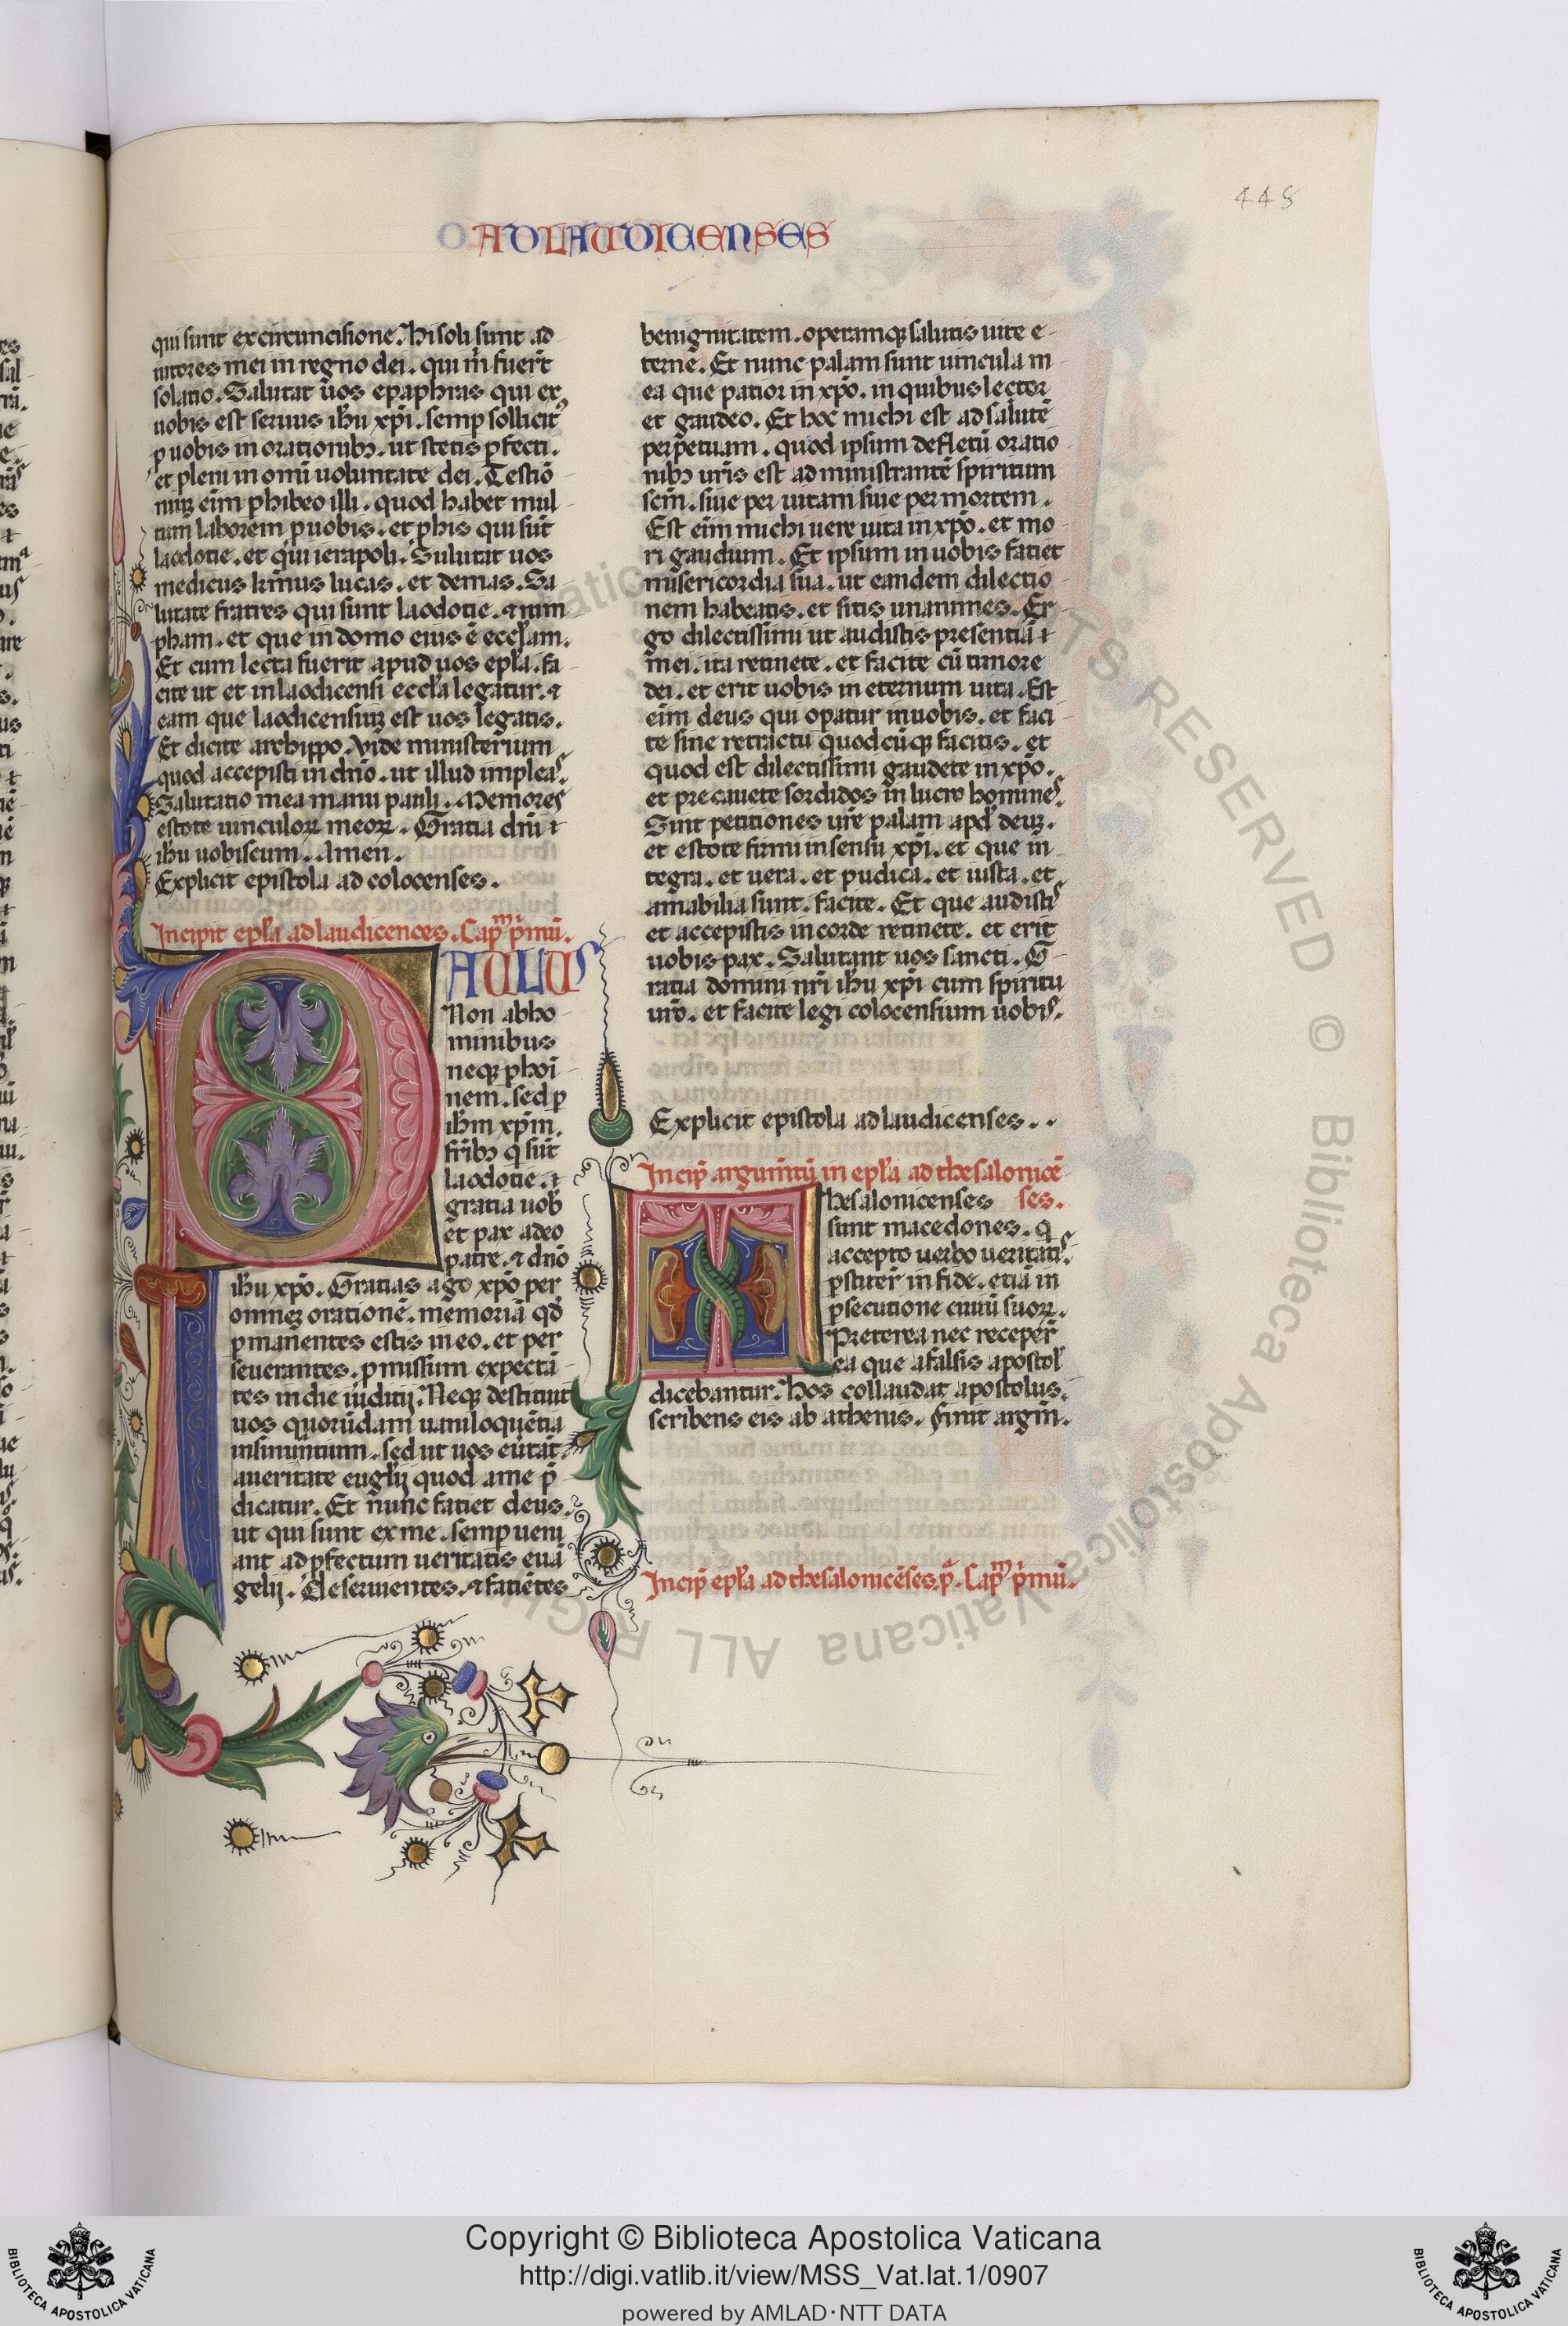 448
AD LAUDICENSES
qui sunt ex circuncisione. Hi soli sunt ad
iutores mei in regno dei. qui m̃ fuert̃
solatio. Salutat ũos epaphras qui ex
uobis est seruus ihũ xp̃i. semp sollicit᾽
ꝓ uobis in orationibꝫ. ut stetis ꝑfecti.
et pleni in omĩ uoluntate dei. Testio᷒
niuꝫ eĩm phibeo illi. quod habet mul
tum laborem ꝓ uobis. et ꝓ his qui sũt
laodocie. et qui ierapoli. Salutat uos
medicus kr̃mus lucas. et demas. Sa
lutate fratres qui sunt laodocie. ⁊ nim
pham. et que in domo eius ẽ eccl̃am.
Et cum lecta fuerit apud uos epl̃a. fa
cite ut et in laodicensi eccl̃a legatur. ⁊
eam que laodicensiuꝫ est uos legatis.
Et dicite archippo. Vide ministerium
quod accepisti in dñõ. ut illud impleas.
Salutatio mea manu pauli. Memores
estote uinculoꝝ meoꝝ. Gratia dñi ⁊
ihũ uobiscum. Amen.
Explicit epistola ad colocenses.
Incipit epl̃a ad laudicences. Capᵐ p̃mũ.
PAULUS
Non ab ho
minibus
neqꝫ ꝑ hoĩ
nem. sed ꝑ
ihm xp̃m.
fr̃ibꝫ q̃ sũt
laodocie. ⁊
gratia uob̃
et pax a deo
patre. ⁊ dñõ
ihũ xp̃o. Gratias ago xp̃o per
omneꝫ orationẽ. memoriã qđ
ꝑmanentes estis in eo. et per
seuerantes. ꝓmissum expectã
tes in die iuditij. Neqꝫ destituit
uos quorũdam uaniloquẽtia
insinuntium. sed ut uos eũtãt
a ueritate eugl̃ij quod a me p̃
dicatur. Et nunc faciet deus.
ut qui sunt ex me. semp ueni
ant ad ꝓfectum ueritatis euã
gelij. Deseruientes. ⁊ faciẽtes
benignitatem. operamqꝫ salutis uite e
terne. Et nunc palam sunt uincula m
ea que patior in xp̃o. in quibus lector
et gaudeo. Et hoc michi est ad salutẽ
perpetuam. quod ipsum defletũ oratio
nibꝫ ur̃is est administrantẽ spiritum
sc̃m. siue per uitam siue per mortem.
Est eĩm michi uere uita in xp̃o. et mo
ri gaudium. Et ipsum in uobis faciet
misericordia sua. ut eandem dilectio
nem habeatis. et sitis unanimes. Er
go dilectissimi ut audistis presentiã ⁊
mei. ita retinete. et facite cũ timore
dei. et erit uobis in eternum uita. Est
eĩm deus qui opatur in uobis. et faci
te sine retractu quodcũqꝫ facitis. et
quod est dilectissimi gaudete in xp̃o.
et precauete sordidos in lucro homines.
Sint petitiones ur̃e palam apđ deuꝫ.
et estote firmi in sensu xp̃i. et que in
tegra. et uera. et pudica. et iusta. et
amabilia sunt. facite. Et que audistis
et accepistis in corde retinete. et erit
uobis pax. Salutant uos sancti. G
ratia domini nr̃i ihũ xp̃i cum spiritu
ur̃o. et facite legi colocensium uobis.
Explicit epistola ad laudicenses..
Incip̃ argumẽtũ in epl̃a ad thesalonicẽ
ses.
Thesalonicenses
sunt macedones. q̃
accepto uerbo ueritatis
ꝑstiter̃ in fide. etiã in
ꝑsecutione ciuiũ suoꝝ.
Preterea nec receper̃
ea que a falsis apostol̃
dicebantur. Hos collaudat apostolus.
scribens eis ab athenis. Finit argm̃.
Incip̃ epl̃a ad thesalonicẽses p̃. Capᵐ p̃mũ.
© Biblioteca Apostolica Vaticana ALL RIGHTS RESERVED
Copyright © Biblioteca Apostolica Vaticana
http://digi.vatlib.it/view/MSS_Vat.lat.1/0907
powered by AMLAD・NTT DATA
BIBLIOTECA APOSTOLICA VATICANA
BIBLIOTECA APOSTOLICA VATICANA